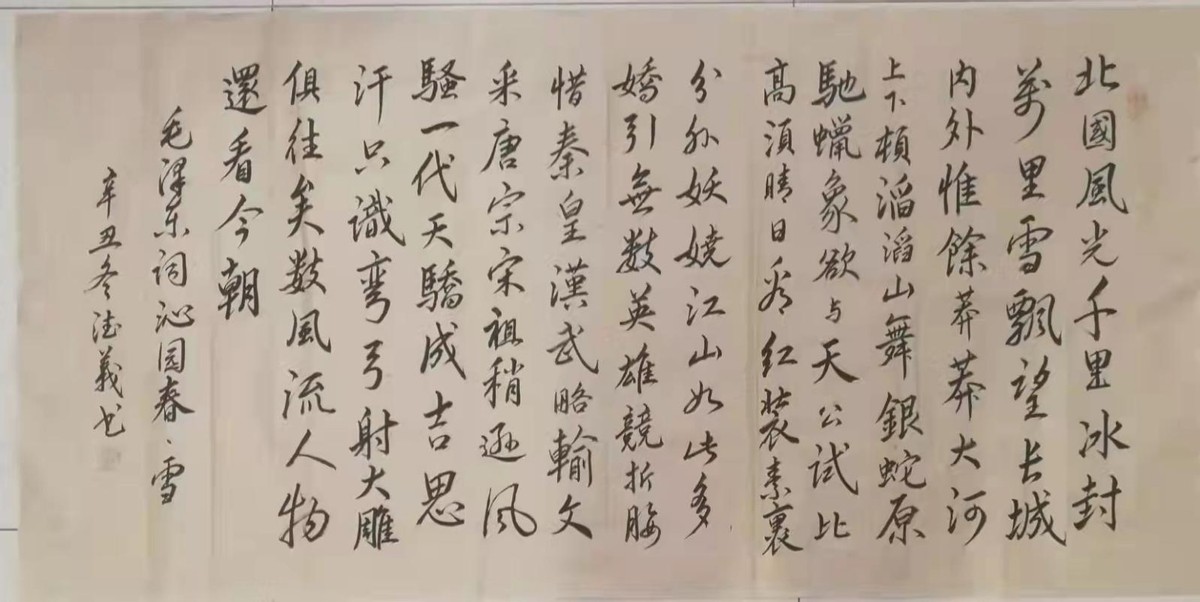 北國風光千里冰封
萬里雪飄望长城
内外惟餘莽莽大河
上下頓滔滔山舞銀蛇原
馳蠟象欲与天公试比
高須晴日看红装素裹
分外妖娆江山如此多
嬌引無数英雄競折腰
惜秦皇漢武略輸文
采唐宗宋祖稍遜风
騷一代天驕成吉思
汗只識弯弓射大雕
俱往矣数風流人物
還看今朝
毛澤东词沁园春、雪
辛丑冬德義书